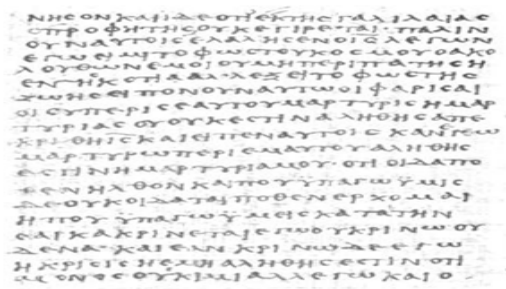 ΝΗϹΟΝΚΑΙΙΔΕΟΤΙΕΚΤΗϹΓΑΛΙΛΑΙΑϹ
ΟΠΡΟΦΗΤΗϹΟΥΚΕΓΙΡΕΤΑΙ·ΠΑΛΙΝ
ΟΥΝΑΥΤΟΙϹΕΛΑΛΗϹΕΝΟΙϹΛΕΓΩΝ
ΕΓΩΕΙΜΙΤΟΦΩϹΤΟΥΚΟϹΜΟΥΟΑΚΟ
ΛΟΥΘΩΝΕΜΟΙΟΥΜΗΠΕΡΙΠΑΤΗϹΗ
ΕΝΤΗϹΚΟΤΙΑΑΛΛΕΞΕΙΤΟΦΩϹΤΗϹ
ΖΩΗϹΕΙΠΟΝΟΥΝΑΥΤΩΟΙΦΑΡΙϹΑΙ
ΟΙϹΥΠΕΡΙϹΕΑΥΤΟΥΜΑΡΤΥΡΙϹΗΜΑΡ
ΤΥΡΙΑϹΟΥΟΥΚΕϹΤΙΝΑΛΗΘΗϹΑΠΕ
ΚΡΙΘΗΙϹΚΑΙΕΙΠΕΝΑΥΤΟΙϹΚΑΝΕΓΩ
ΜΑΡΤΥΡΩΠΕΡΙΕΜΑΥΤΟΥΑΛΗΘΗϹ
ΕϹΤΙΝΗΜΑΡΤΥΡΙΑΜΟΥ·ΟΤΙΟΙΔΑΠΟ
ΘΕΝΗΛΘΟΝΚΑΙΠΟΥΫΠΑΓΩΫΜΙϹ
ΔΕΟΥΚΟΙΔΑΤΑΙΠΟΘΕΝΕΡΧΟΜΑΙ
ΗΠΟΥΫΠΑΓΩΫΜΕΙϹΚΑΤΑΤΗΝ
ϹΑΡΚΑΚΡΙΝΕΤΑΙΕΓΩΟΥΚΡΙΝΩΟΥ
ΔΕΝΑ·ΚΑΙΕΑΝΚΡΙΝΩΔΕΕΓΩ
ΗΚΡΙϹΙϹΗΕΜΗΑΛΗΘΗϹΕϹΤΙΝΟΤΙ
ΜΟΝΟϹΟΥΚΙΜΙΑΛΛΕΓΩΚΑΙΟ